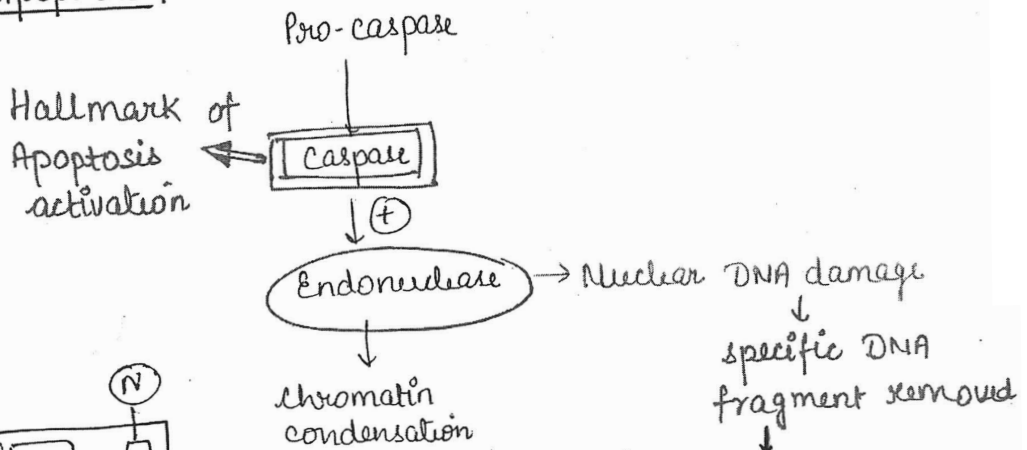 Pro-caspase
Hallmark of
Apoptosis
activation
Caspase
+
Endonuclease → Nuclear DNA damage
specific DNA
fragment removed
N
chromatin
condensation